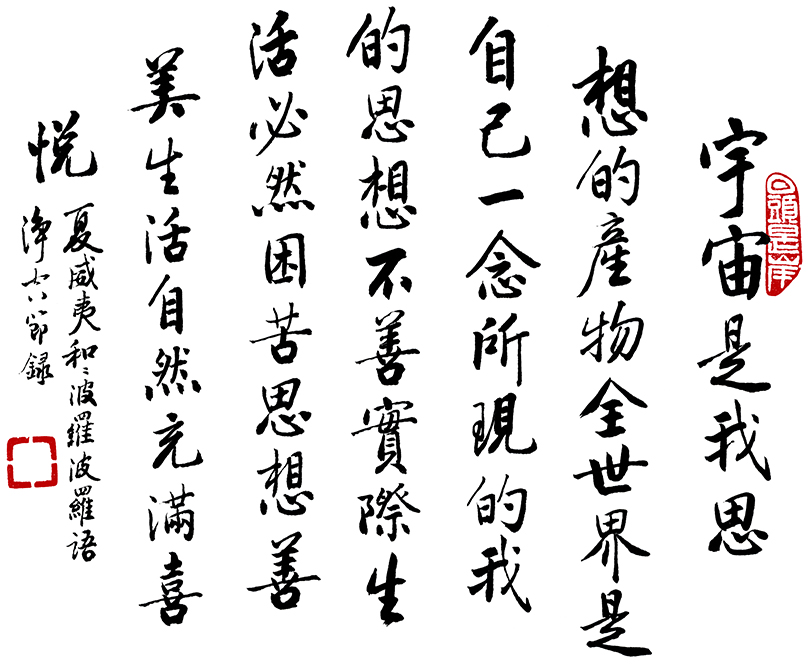 回頭是岸
宇宙是我思
想的產物全世界是
自己一念所現的我
的思想不善實際生
活必然困苦思想善
美生活自然充滿喜
悅
夏威夷和〻波羅波羅語
淨空節錄